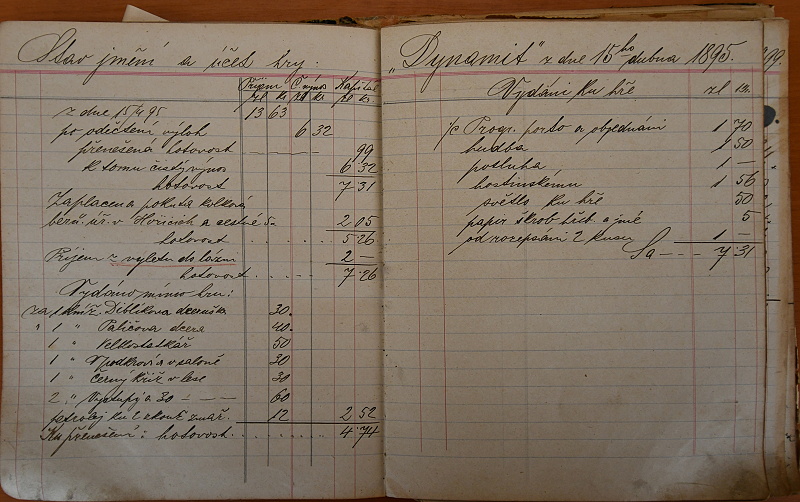 Stav jmění a účet hry.
Příjem Č. výnos Kapitál
zl kr zl kr zl kr
z dne 15/4 95 13 63
po odečtění výloh 6 32
přenešená hotovost 99
k tomu čistý výnos 6 32
hotovost 7 31
Zaplacena pokuta kolková
berú. úř. v Hořicích a cestné 2 05
hotovost 5 26
Příjem z výletu do lázní 2 —
hotovost 7 26
Vydáno mimo hru:
za 1 Diblíkova dceruška 30
" 1 " Paličova dcera 40
" 1 " Velkostatkář 50
" 1 " V podkroví a v saloně 30
" 1 " Černý kříž v lese 30
2 " Výstupy á 30 60
petrolej ku zkoušc 12 2 52
Ku přenešení: hotovost 4 74
"Dynamit" z dne 15ho dubna 1895.
Vydání ku hře zl kr.
Progr. porto a objednání 1 70
hudba 1 50
posluha 1 —
hostinskému 1 56
světlo ku hře 50
papír škrob a jiné 5
od rozepsání 2 kusů 1 —
Sa 7 31